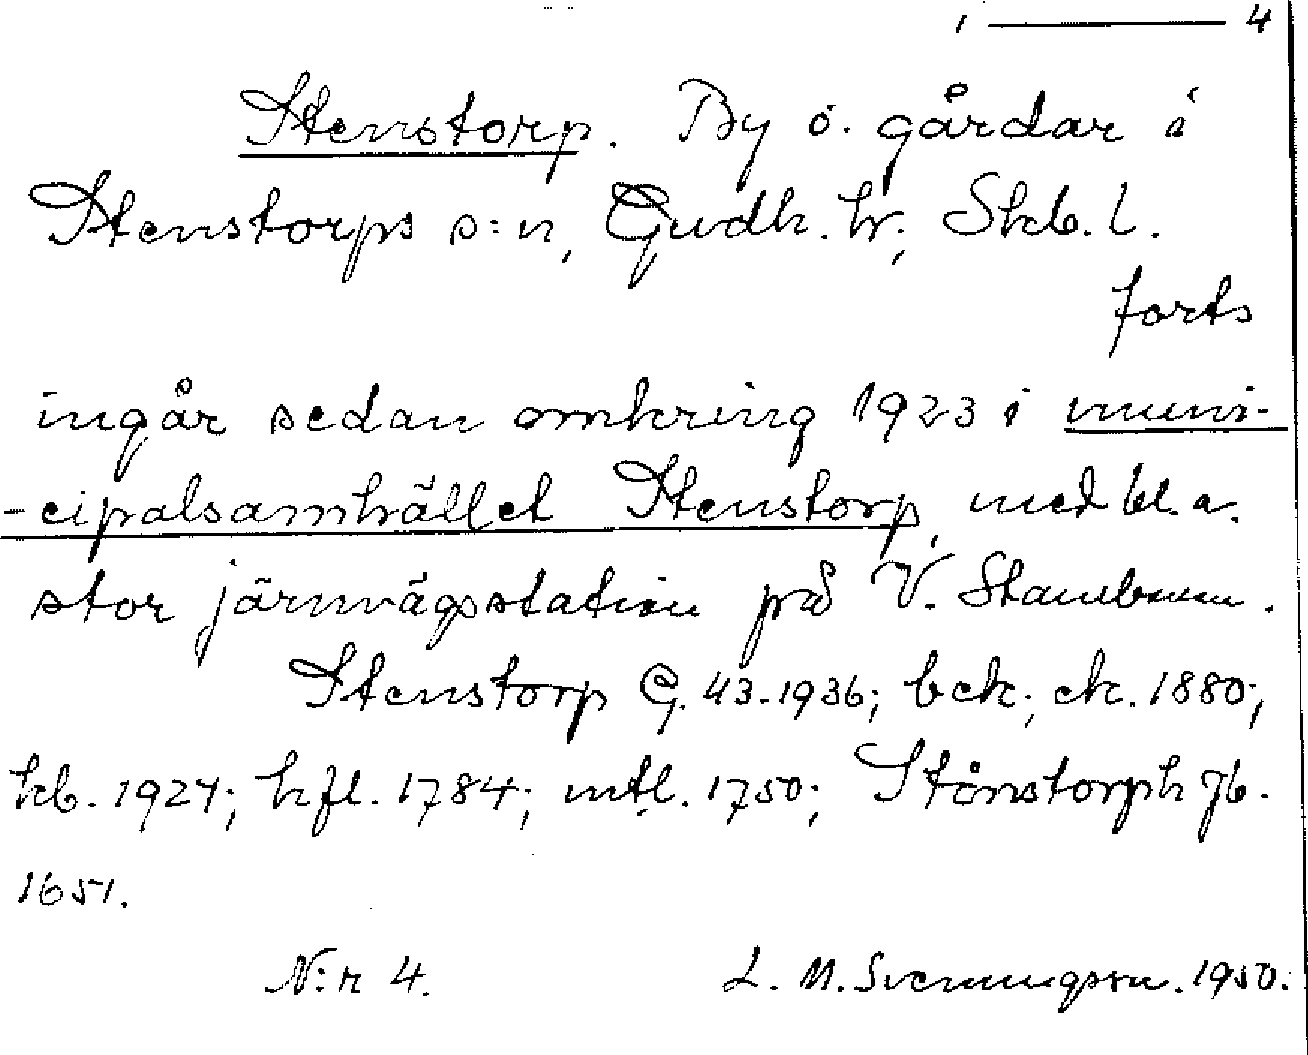 1 ——— 4
Stenstorp. By o. gårdar i
Stenstorps s:n, Gudh. hr; Skb. l.
forts
ingår sedan omkring 1923 i muni-
-cipalsamhället Stenstorp, med bl. a.
stor järnvägsstation på V. Stambanan.
Stenstorp G. 43-1936; bek; ek. 1880;
kb. 1927; hfl. 1784; mtl. 1750; Stönstorph Jb.
1651.
N:r 4. L. M. Svenungsson. 1950.